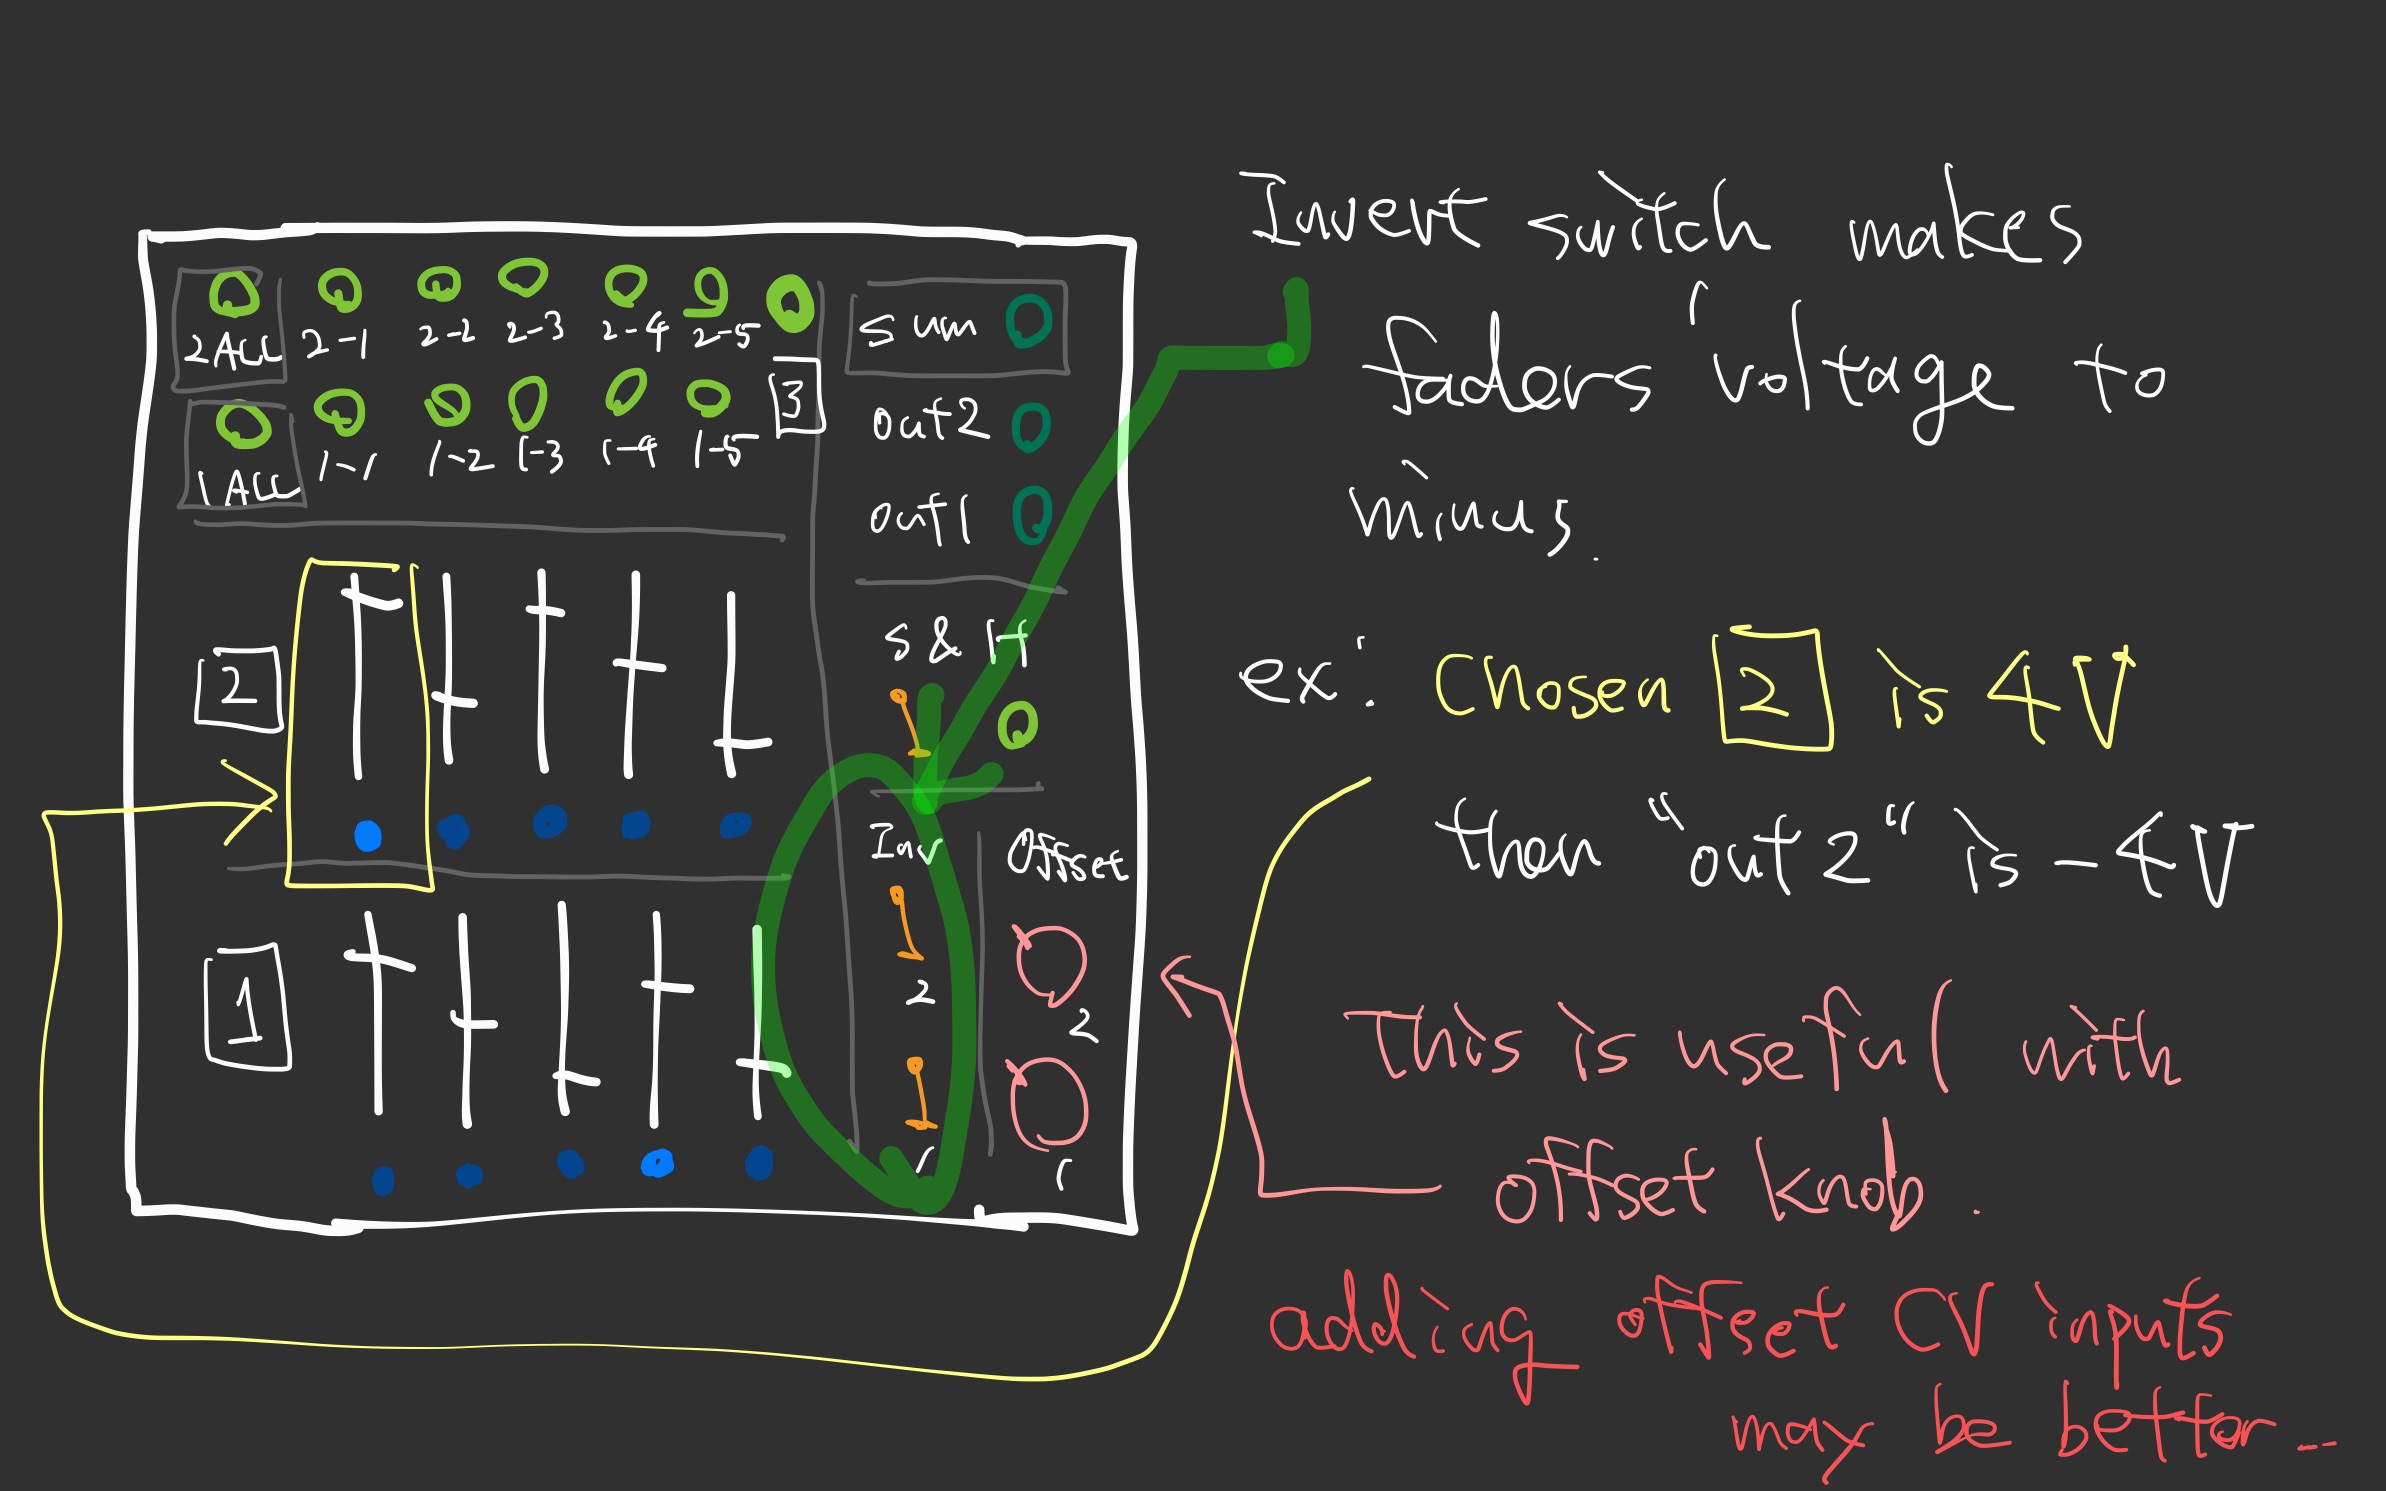 2 ALL 2-1 2-2 2-3 2-4 2-5
3
1 ALL 1-1 1-2 1-3 1-4 1-5
sum
out2
out1
S & H
2
1
Inv Offset
2 2
1 1
Invert switch makes
faders' voltage to
minus.
ex. Chosen 2 is 4V
then "out 2" is -4V
This is useful with
offset knob.
adding offset CV inputs
may be better...